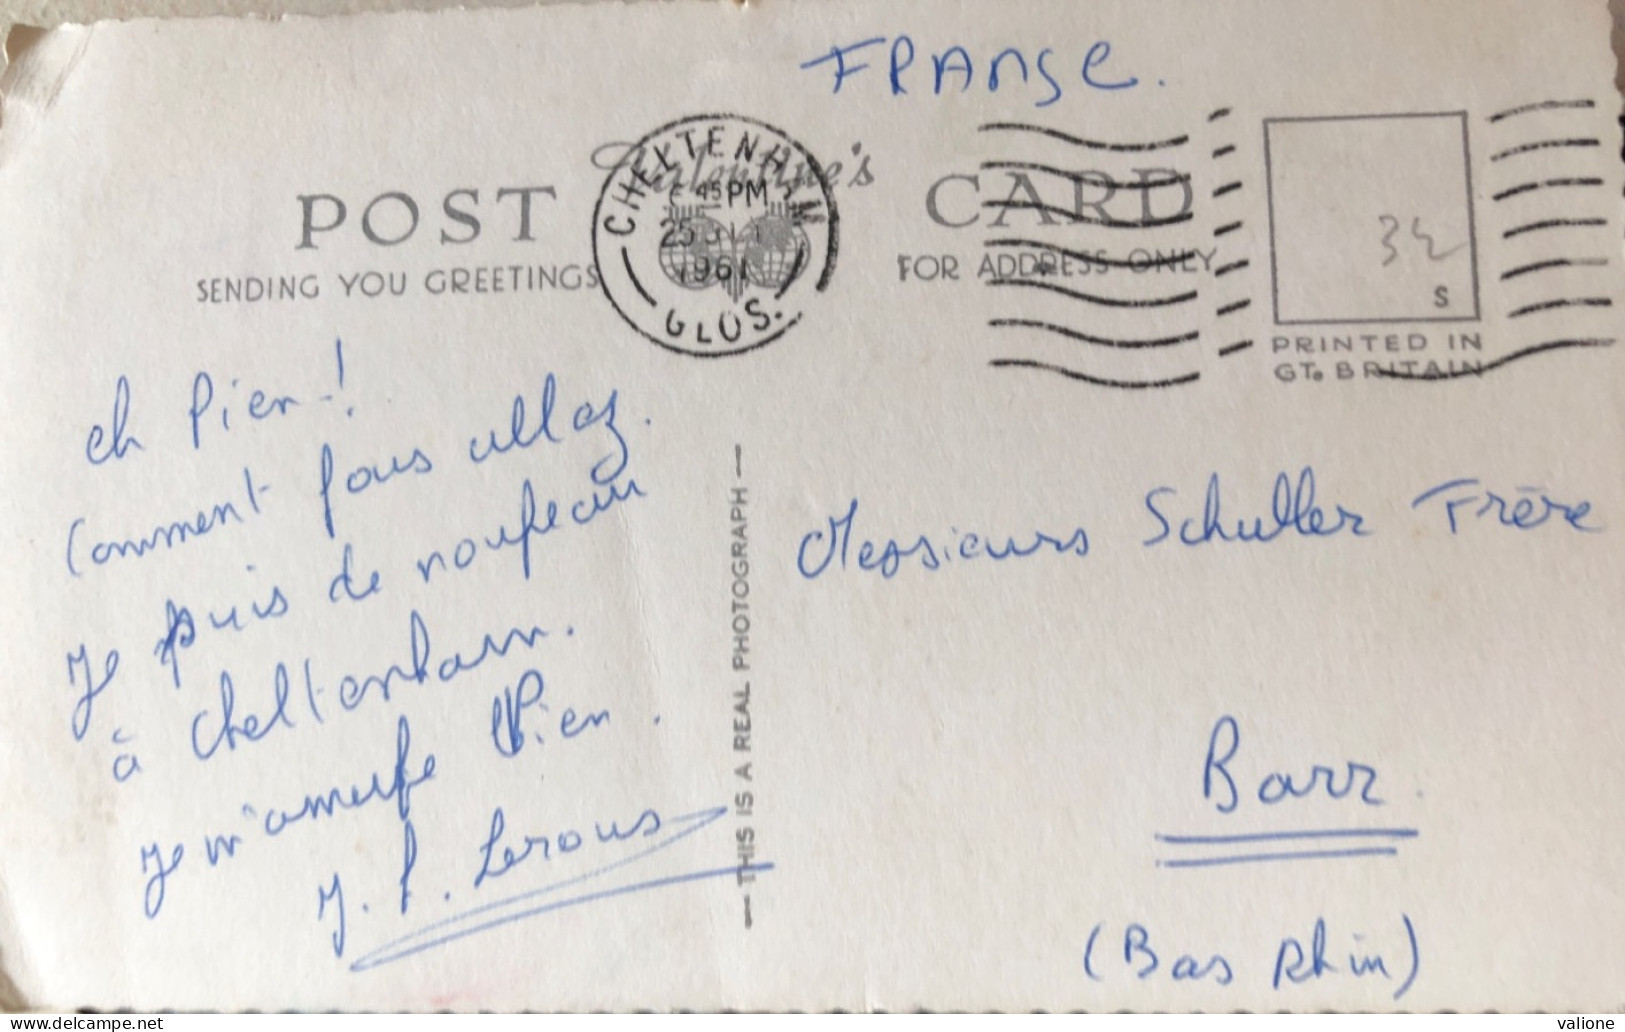 FRANSE.
Valentine's
POST CARD
SENDING YOU GREETINGS
FOR ADDRESS ONLY
CHELTENHAM
45 PM
25
1961
GLOS.
32
S
PRINTED IN
GT. BRITAIN
eh Pien-!
Comment fous allez.
Je puis de noufeau
à Cheltenham.
Je m'amuse Pien.
J. P. Lerous
— THIS IS A REAL PHOTOGRAPH —
Messieurs Schuller Frère
Barr
(Bas Rhin)
valione
delcampe.net